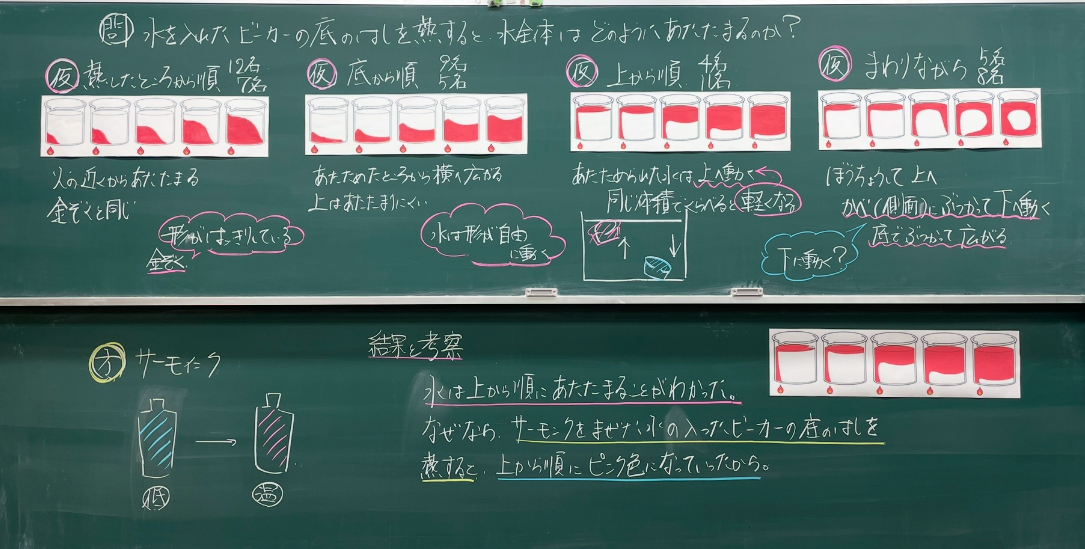 問 水を入れたビーカーの底のはしを熱すると、水全体はどのようにあたたまるのか？
仮 熱したところから順 12名
7名
火の近くからあたたまる
金ぞくと同じ
形がはっきりしている
金ぞく
仮 底から順 9名
5名
あたためたところから横へ広がる
上はあたたまりにくい
水は形が自由
に動く
仮 上から順 4名
11名
あたためられた水は上へ動く
同じ体積でくらべると軽くなる
仮 まわりながら 5名
8名
ぼうちょうして上へ
かべ(側面)にぶつかって下へ動く
底でぶつかって広がる
下に動く？
方 サーモインク
低
温
結果と考察
水は上から順にあたたまることがわかった。
なぜなら、サーモインクをまぜた水の入ったビーカーの底のはしを
熱すると、上から順にピンク色になっていったから。